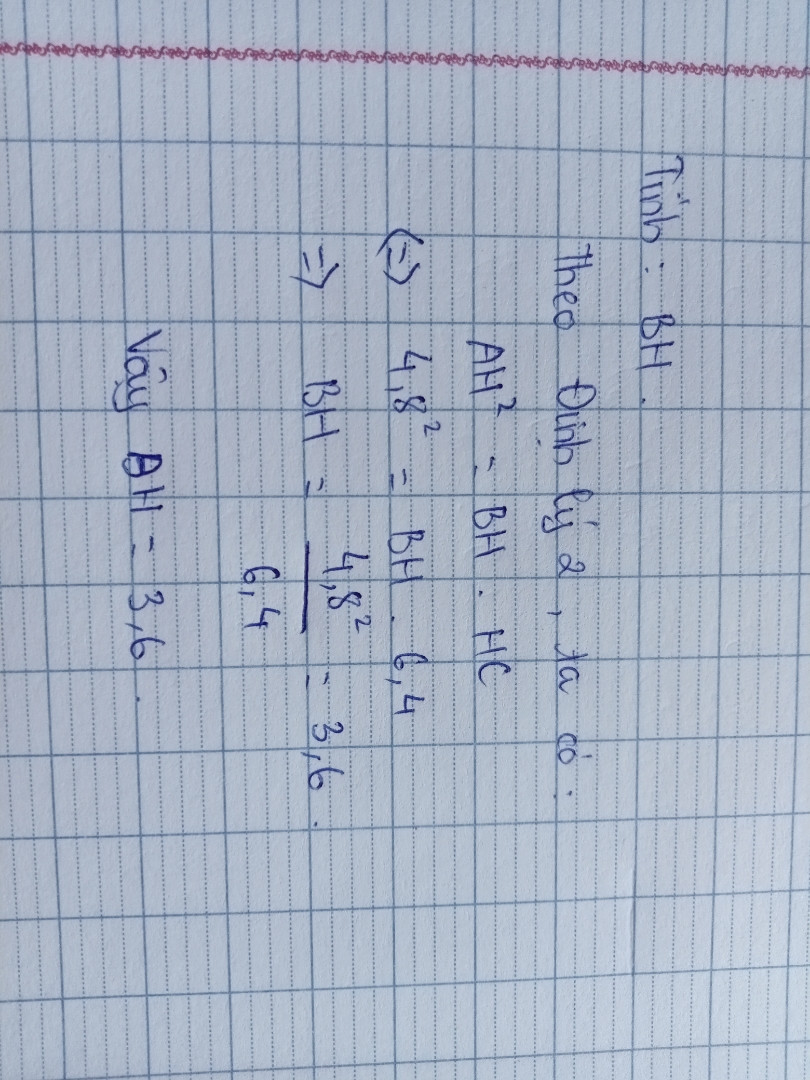 Tính: BH.
Theo Định lý 2, ta có:
AH² = BH. HC
(=) 4,8² = BH. 6,4
=) BH = 4,8² / 6,4 = 3,6.
Vậy AH = 3,6.